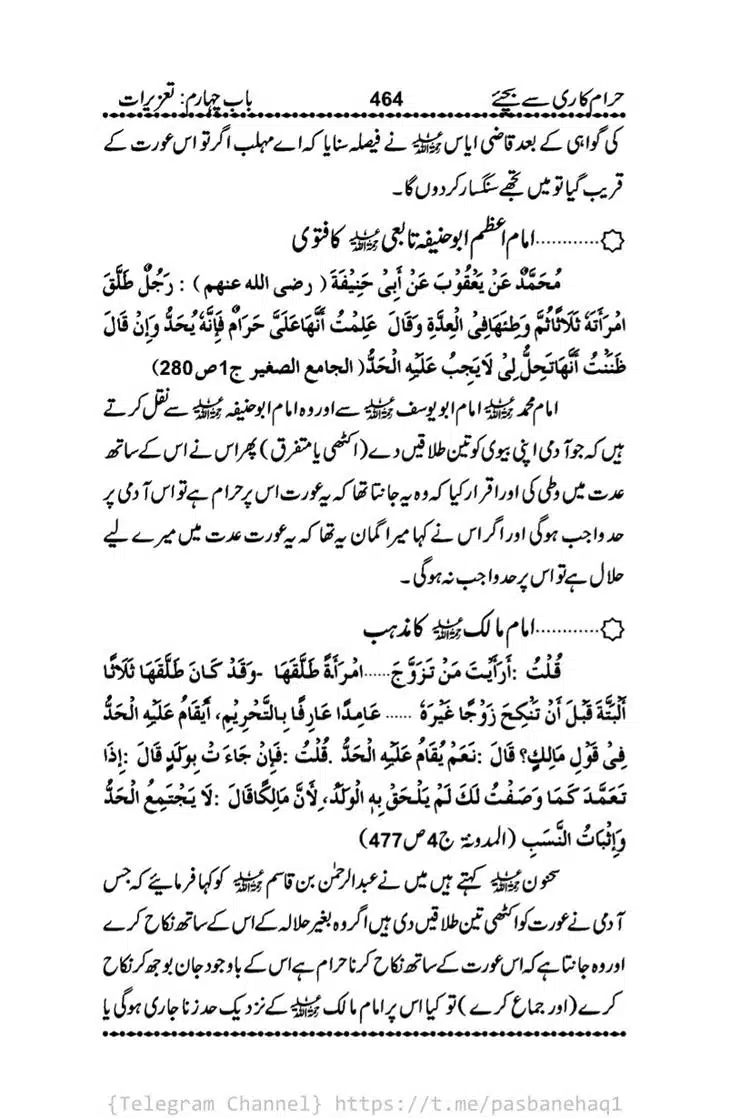 حرام کاری سے بچئے 464 باب چہارم: تعزیرات
کی گواہی کے بعد قاضی ایاس رحمۃ اللہ علیہ نے فیصلہ سنایا کہ اے مہلب اگر تو اس عورت کے
قریب گیا تو میں تجھے سنگسار کردوں گا۔
۞............امام اعظم ابو حنیفہ تابعی رحمۃ اللہ علیہ کا فتویٰ
مُحَمَّدٌ عَنْ يَعْقُوْبَ عَنْ أَبِیْ حَنِيْفَةَ ( رضی الله عنهم ) : رَجُلٌ طَلَّقَ
امْرَأَتَهٗ ثَلَاثًا ثُمَّ وَطِئَهَا فِی الْعِدَّةِ وَقَالَ عَلِمْتُ أَنَّهَا عَلَیَّ حَرَامٌ فَإِنَّهٗ يُحَدُّ وَإِنْ قَالَ
ظَنَنْتُ أَنَّهَا تَحِلُّ لِیْ لَا يَجِبُ عَلَيْهِ الْحَدُّ( الجامع الصغير ج1ص280)
امام محمد رحمۃ اللہ علیہ امام ابو یوسف رحمۃ اللہ علیہ سے اور وہ امام ابو حنیفہ رحمۃ اللہ علیہ سے نقل کرتے
ہیں کہ جو آدمی اپنی بیوی کو تین طلاقیں دے (اکٹھی یا متفرق) پھر اس نے اس کے ساتھ
عدت میں وطی کی اور اقرار کیا کہ وہ یہ جانتا تھا کہ یہ عورت اس پر حرام ہے تو اس آدمی پر
حد واجب ہوگی اور اگر اس نے کہا میرا گمان یہ تھا کہ یہ عورت عدت میں میرے لیے
حلال ہے تو اس پر حد واجب نہ ہوگی۔
۞............امام مالک رحمۃ اللہ علیہ کا مذہب
قُلْتُ :أَرَأَيْتَ مَنْ تَزَوَّجَ......امْرَأَةً طَلَّقَهَا -وَقَدْ كَانَ طَلَّقَهَا ثَلَاثًا
أَلْبَتَّةَ قَبْلَ أَنْ تَنْكِحَ زَوْجًا غَيْرَهٗ ...... عَامِدًا عَارِفًا بِالتَّحْرِيْمِ، أَيُقَامُ عَلَيْهِ الْحَدُّ
فِیْ قَوْلِ مَالِكٍ؟ قَالَ :نَعَمْ يُقَامُ عَلَيْهِ الْحَدُّ .قُلْتُ :فَإِنْ جَاءَ تْ بِوَلَدٍ قَالَ :إِذَا
تَعَمَّدَ كَمَا وَصَفْتُ لَكَ لَمْ يَلْحَقْ بِهِ الْوَلَدُ، لِأَنَّ مَالِكًا قَالَ :لَا يَجْتَمِعُ الْحَدُّ
وَإِثْبَاتُ النَّسَبِ (المدونة ج4ص477)
سحنون رحمۃ اللہ علیہ کہتے ہیں میں نے عبدالرحمٰن بن قاسم رحمۃ اللہ علیہ کو کہا فرمائیے کہ جس
آدمی نے عورت کو اکٹھی تین طلاقیں دی ہیں اگر وہ بغیر حلالہ کے اس کے ساتھ نکاح کرے
اور وہ جانتا ہے کہ اس عورت کے ساتھ نکاح کرنا حرام ہے اس کے باوجود جان بوجھ کر نکاح
کرے (اور جماع کرے) تو کیا اس پر امام مالک رحمۃ اللہ علیہ کے نزدیک حد زنا جاری ہوگی یا
{Telegram Channel} https://t.me/pasbanehaq1